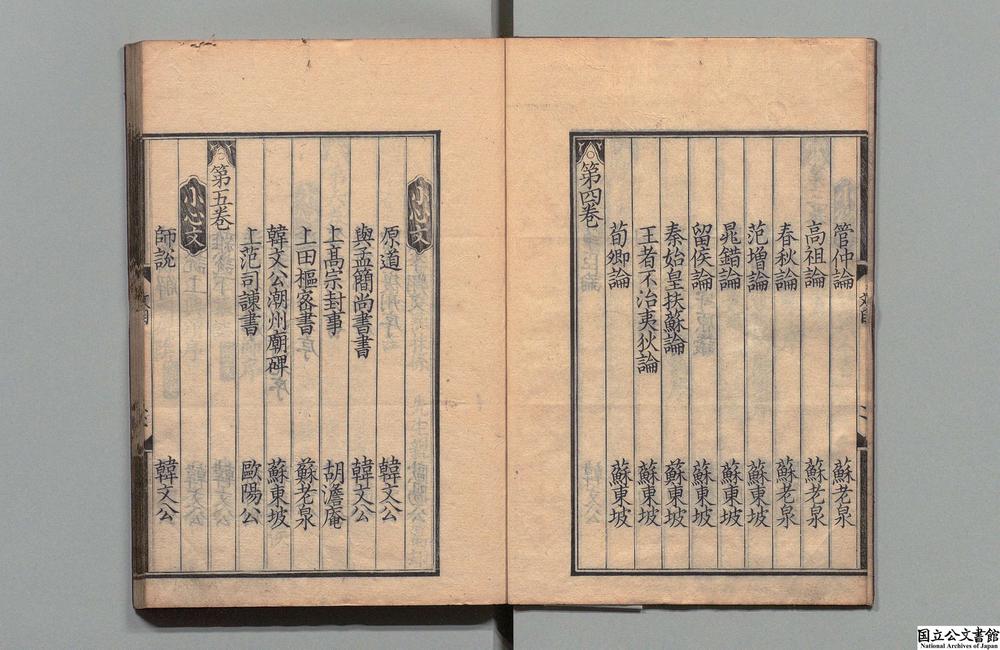 管仲論 蘇老泉
高祖論 蘇老泉
春秋論 蘇老泉
范增論 蘇東坡
晁錯論 蘇東坡
留侯論 蘇東坡
秦始皇扶蘇論 蘇東坡
王者不治夷狄論 蘇東坡
荀卿論 蘇東坡
第四卷
小心文
原道 韓文公
與孟簡尚書書 韓文公
上高宗封事 胡澹庵
上田樞密書 蘇老泉
韓文公潮州廟碑 蘇東坡
上范司諫書 歐陽公
第五卷
小心文
師說 韓文公
国立公文書館
National Archives of Japan